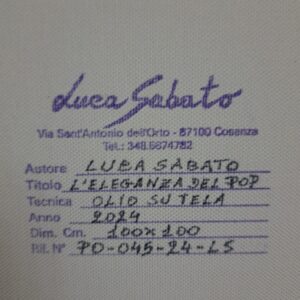 Luca Sabato
Via Sant'Antonio dell'Orto - 87100 Cosenza
Tel.: 348.6674782
Autore LUCA SABATO
Titolo L'ELEGANZA DEL POP
Tecnica OLIO SU TELA
Anno 2024
Dim. Cm. 100x100
Rif. N° PO-045-24-LS